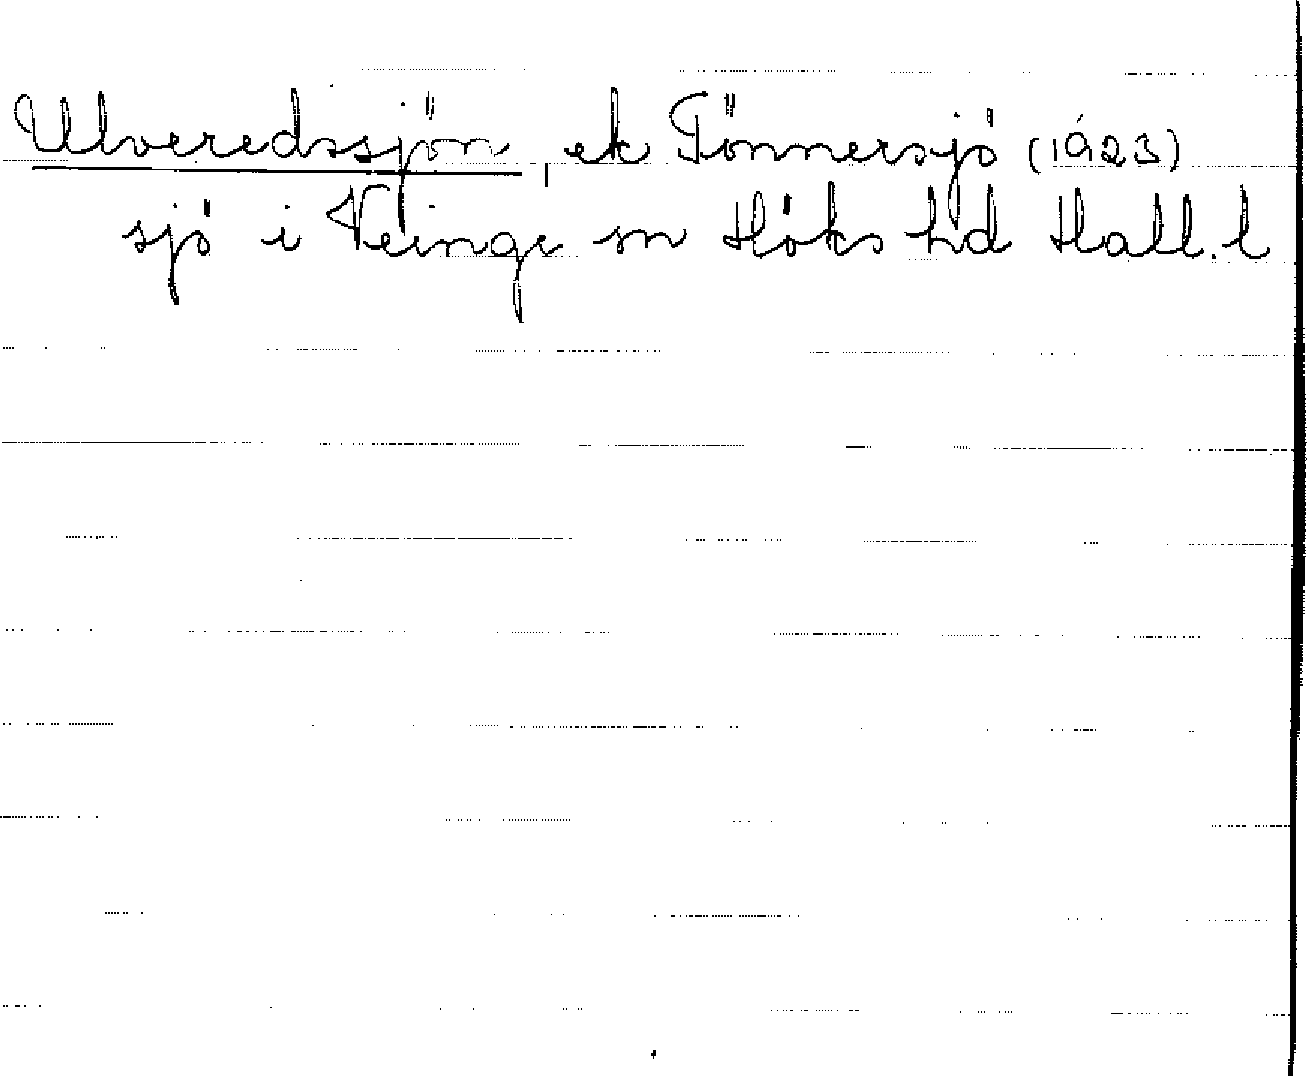 Ulveredssjön, ek Tönnersjö (1923)
sjö i Veinge sn Höks hd Hall. l